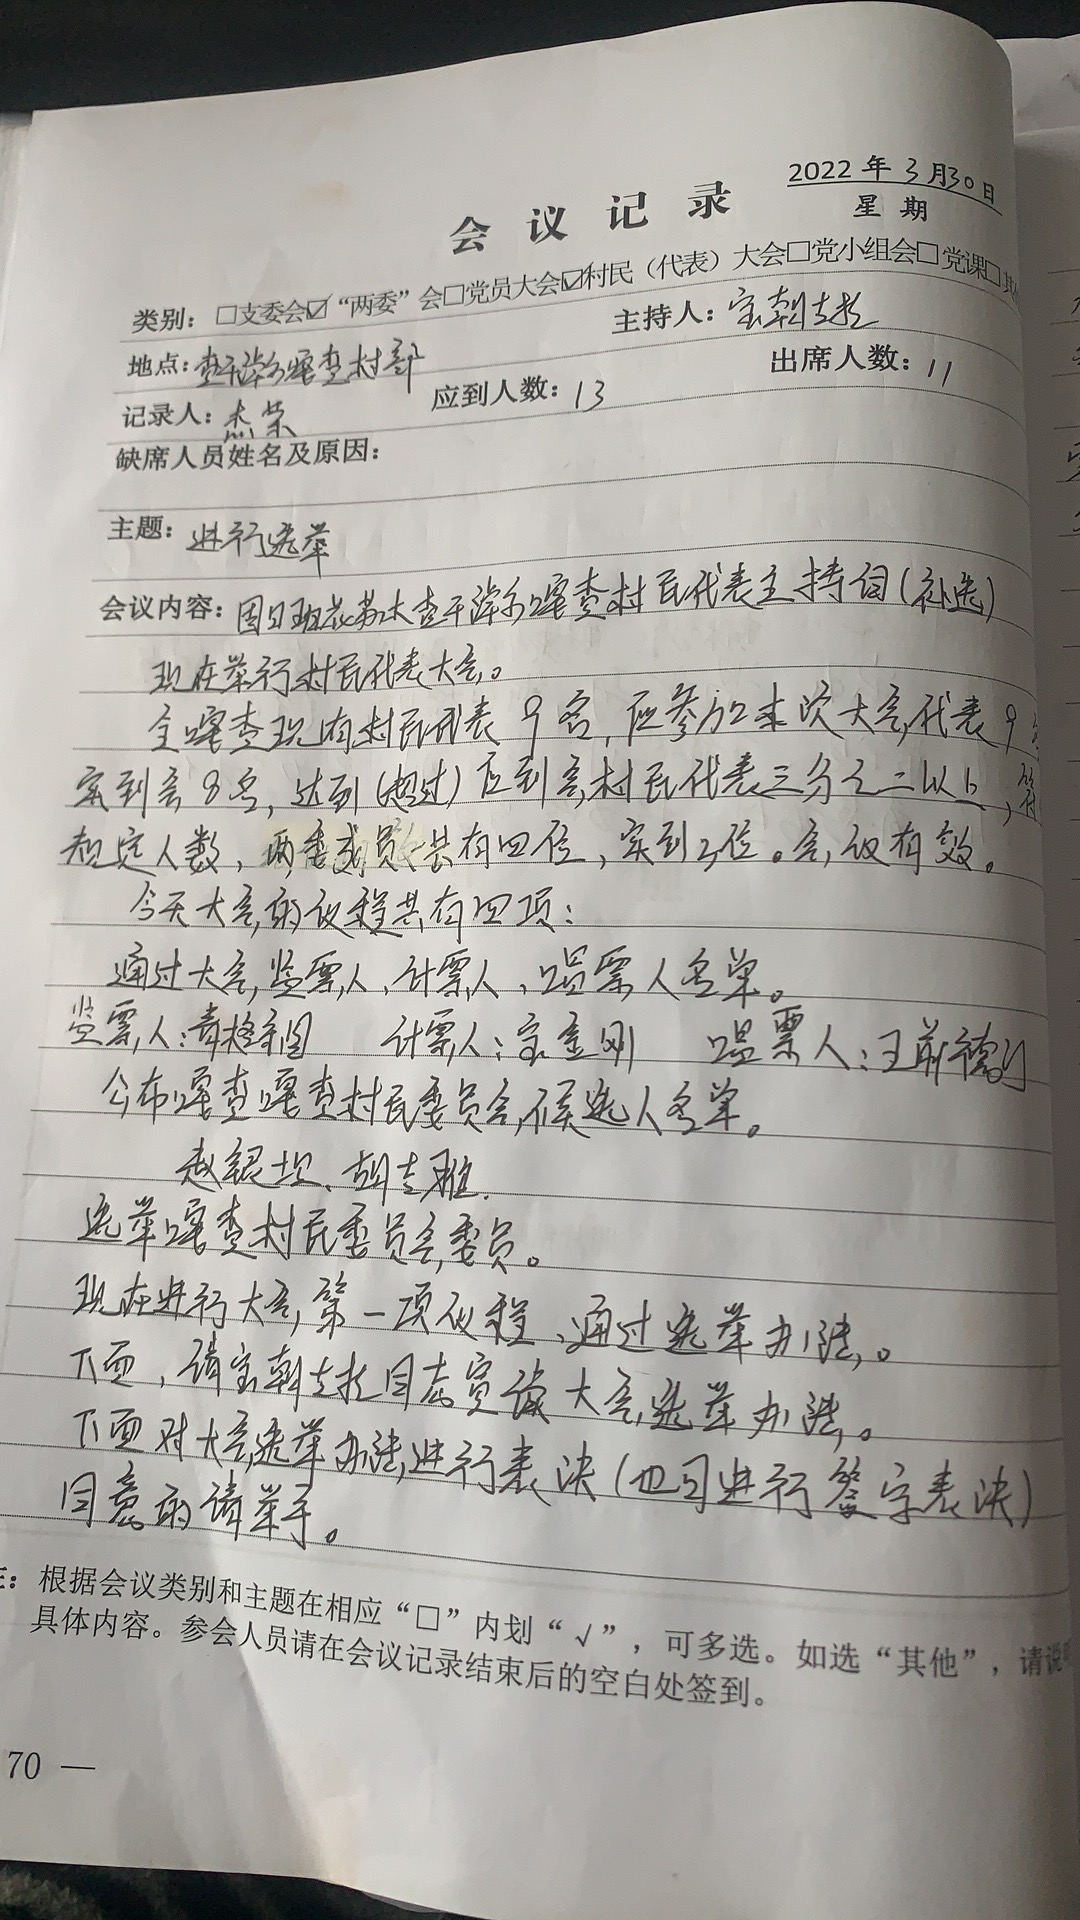 2022 年 3 月30日
会 议 记 录
星 期
类别：□支委会☑“两委”会□党员大会☑村民（代表）大会□党小组会□党课□其
地点：查干淖尔嘎查村部
主持人：宝朝
记录人：杰荣
应到人数：13
出席人数：11
缺席人员姓名及原因：
主题：进行选举
会议内容：苏木查干淖尔嘎查村民代表主持词(补选)
现在举行村民代表大会。
全嘎查现有村民代表9名，应参加本次大会代表9
实到会8名，达到(超过)应到会村民代表三分之二以上，符
规定人数，两委成员共有四位，实到3位。会议有效。
今天大会的议程共有四项：
通过大会监票人、计票人、唱票人名单。
监票人： 计票人：宝金刚 唱票人：王
公布嘎查嘎查村民委员会候选人名单。
赵银坦、胡吉雅.
选举嘎查村民委员会委员。
现在进行大会第一项议程、通过选举办法。
下面，请宝朝同志宣读大会选举办法。
下面对大会选举办法进行表决(也可进行签字表决)
同意的请举手。
注：根据会议类别和主题在相应“□”内划“√”，可多选。如选“其他”，请说
具体内容。参会人员请在会议记录结束后的空白处签到。
70 —